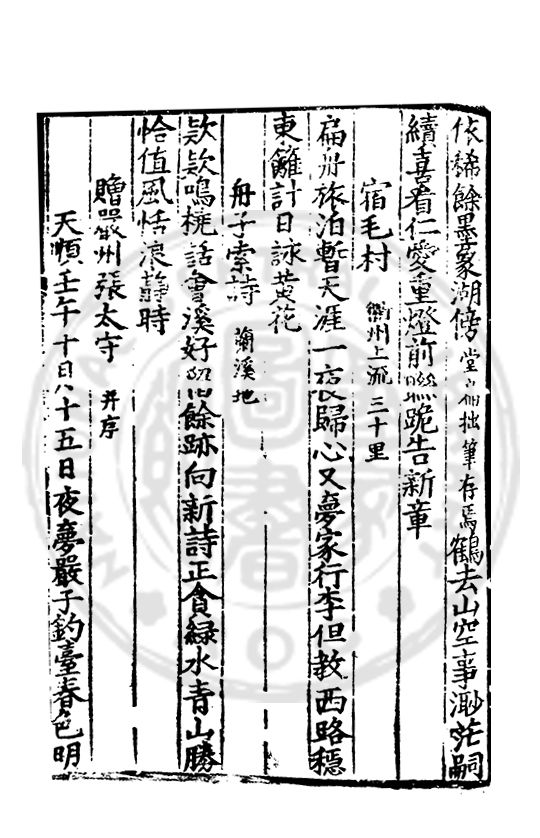 依稀餘墨篆湖傍堂扁拙筆存焉鶴去山空事渺茫嗣
續喜看仁愛重燈前聯跪告新章
宿毛村 衢州上流三十里
扁舟旅泊暫天涯一夜歸心又夢家行李但教西路穩
東籬計日詠黃花
舟子索詩 蘭溪地
欵欵鳴橈話會溪好留餘跡向新詩正貪綠水青山勝
恰值風恬浪靜時
贈嚴州張太守 并序
天順壬午十月十五日夜夢嚴子釣臺春色明